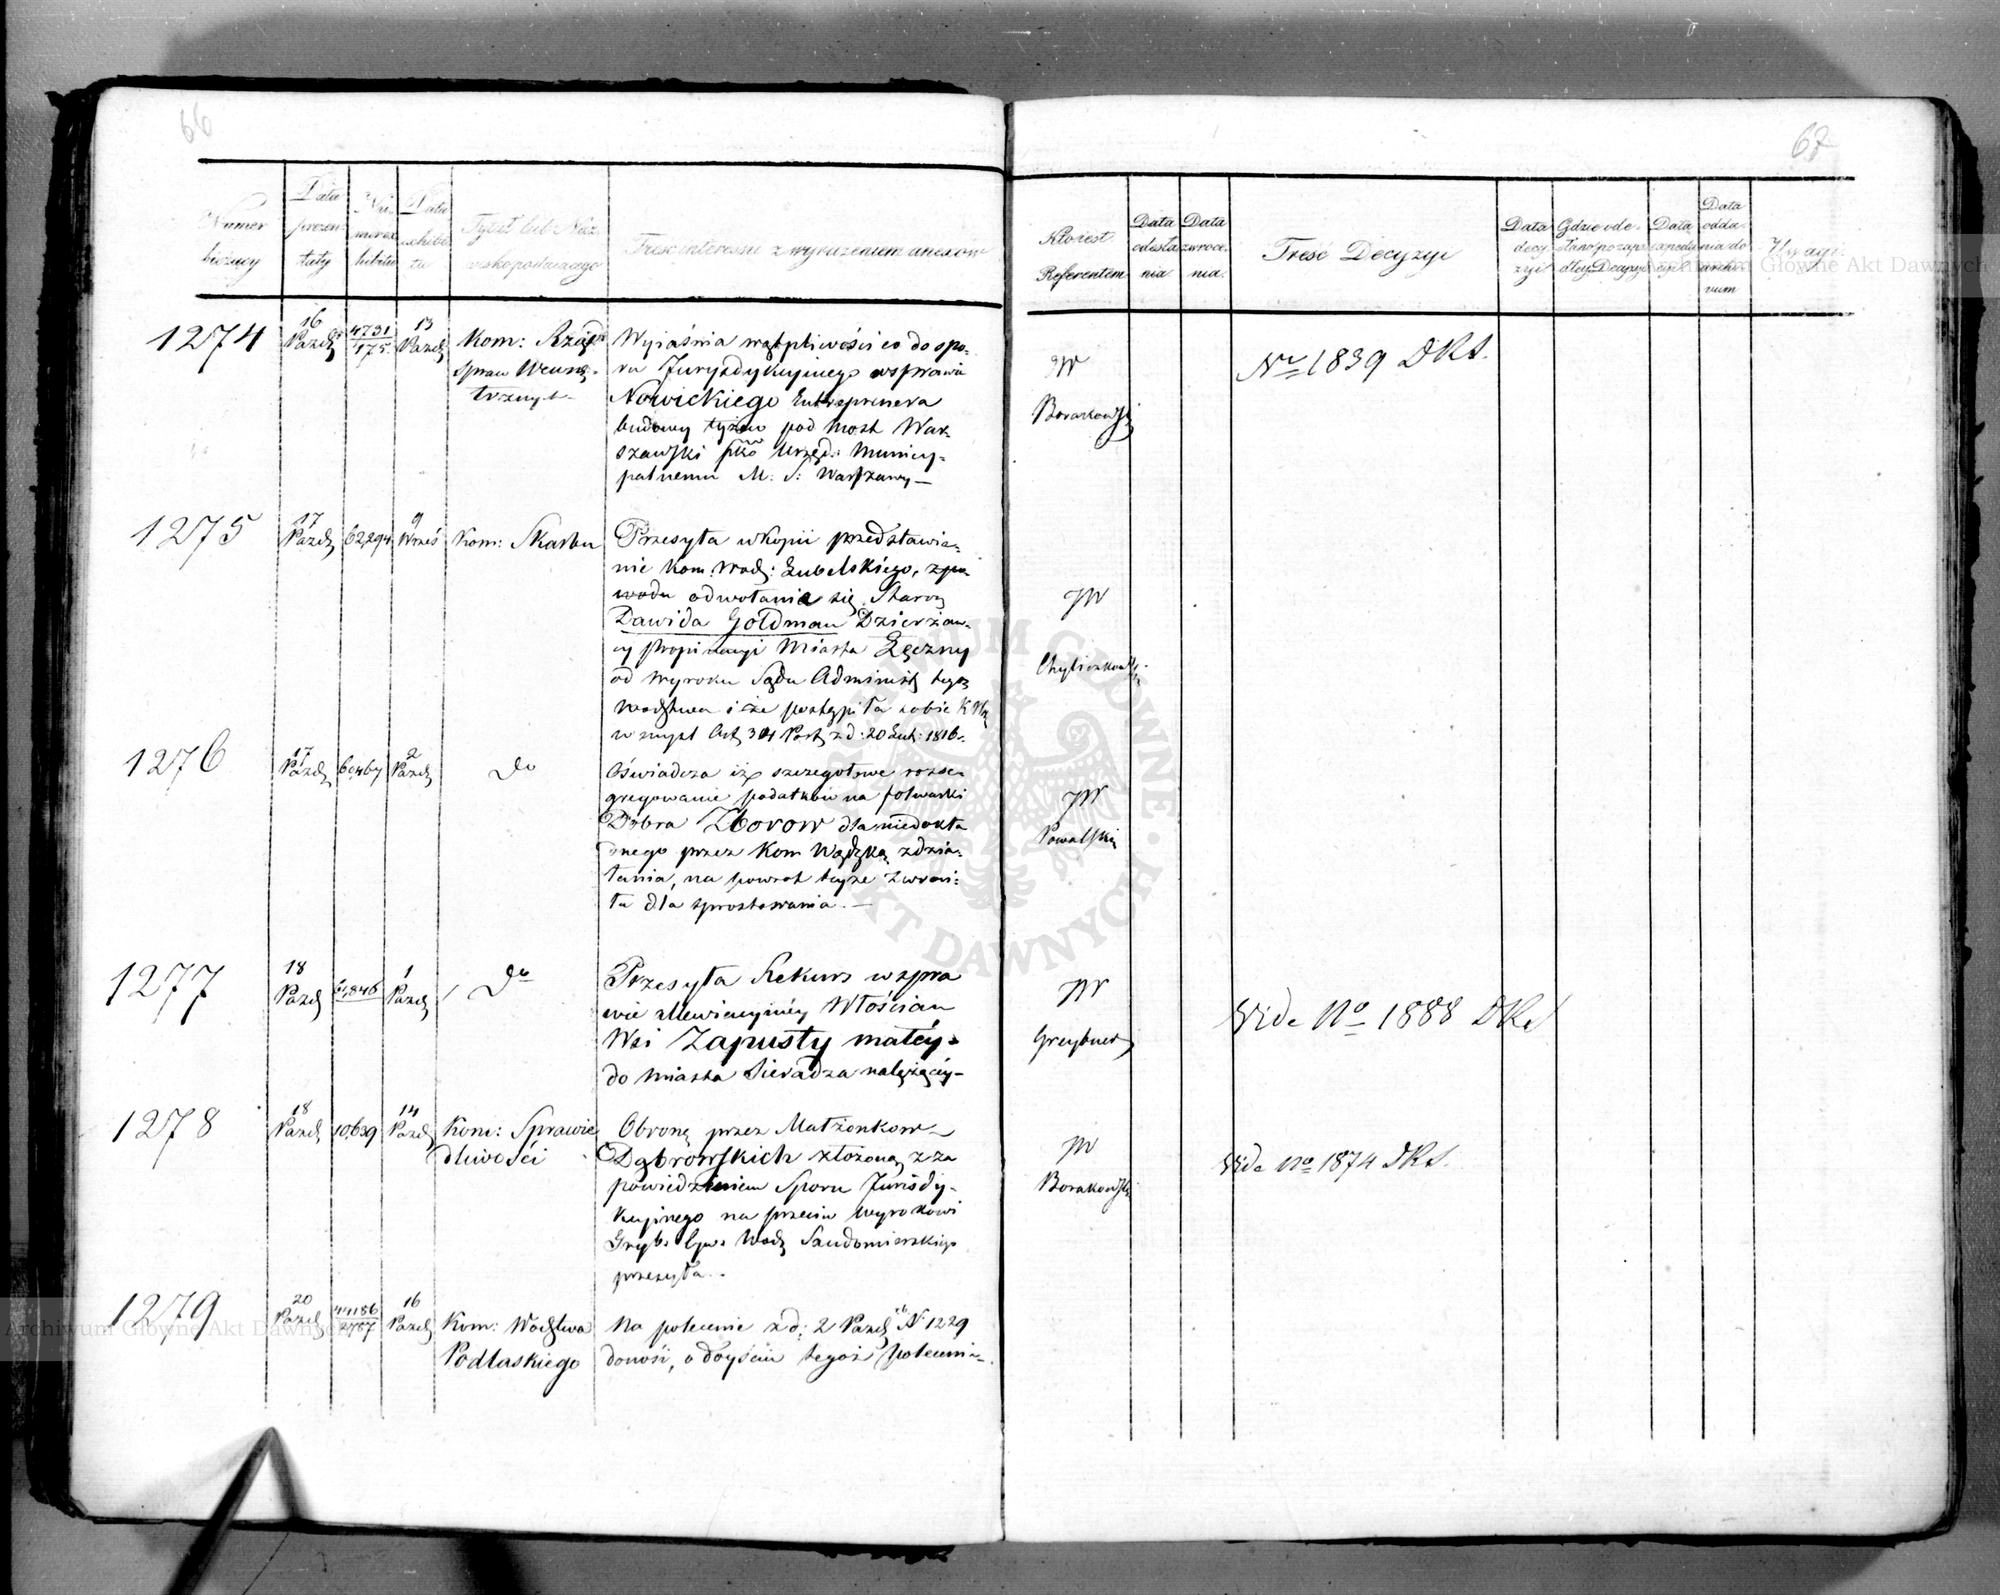 66
Numer bieżący
Data prezentaty
Numer exhibitu
Data exhibitu
Tytuł lub Nazwisko podaiącego
Treść interessu z wyrażeniem anexów
1274
16 Paźdz
4731/175
13 Paźdz
Kom: Rząd:
Spraw Wewnę-
trznych
Wyjaśnia wątpliwości co do spo-
ru Juryzdykcyjnego w sprawie
Nowickiego Entreprenera
budowy pod Most War-
szawski Urzęd: Municy-
palnemu M. S: Warszawy —
1275
17 Paźdz
62,294
9 Wrześ
Kom: Skarbu
Przesyła w kopii przedstawie-
nie Kom. Wodz: Lubelskiego, z po-
wodu odwołania się Staroz
Dawida Goldman Dzierżaw-
cy propinacyi Miasta Łęczny
od wyroku Sądu Administ tegoż
Wodztwa i że postąpiła sobie K
w myśl Art 34 Post z d: 20 1816.
1276
17 Paźdz
60467
2 Paźdz
Do
Oświadcza iż szczegółowe rozse-
gregowanie podatków na folwarki
Dobra Zborow dla niedokła
dnego przez Kom Wodzką zdzia-
łania, na powrot teyże zwróci-
ła dla sprostowania. —
1277
18 Paźdz
61,846
1 Paźdz
Do
Przesyła Rekurs w spra
wie Włościan
Wsi Zapusty małey
do miasta Sieradza należącéy —
1278
18 Paźdz
10,639
14 Paźdz
Kom: Sprawie
dliwości
Obronę przez Małżonkow
Dąbrowskich złożoną z za
powiedzeniem Sporu Jurisdy-
kcyjnego na przeciw wyrokowi
Tryb. Cyw. Wodz Sandomierskiego
przesyła.
1279
20 Paźdz
44186/2787
16 Paźdz
Kom: Wodztwa
Podlaskiego
Na polecenie z d: 2 Paźdz N 1229
donosi, o doyściu tegoż polecenia
67
Kto iest Referentem
Data odesłania
Data zwrócenia
Treść Decyzyi
Data decyzyi
Gdzie odesłano po zapadłey Decyzyi
Data expedycyi
Data oddania do archivum
Uwagi
JW
Borakowski
No 1839 DRS.
JW
Chyliczkowski
JW
Kowalski
JW
Greybner
Vide No 1888 DRS
JW
Borakowski
Vide No 1874 DRS.
Archiwum Główne Akt Dawnych
Archiwum Główne Akt Dawnych
ARCHIWUM GŁÓWNE · AKT DAWNYCH ·